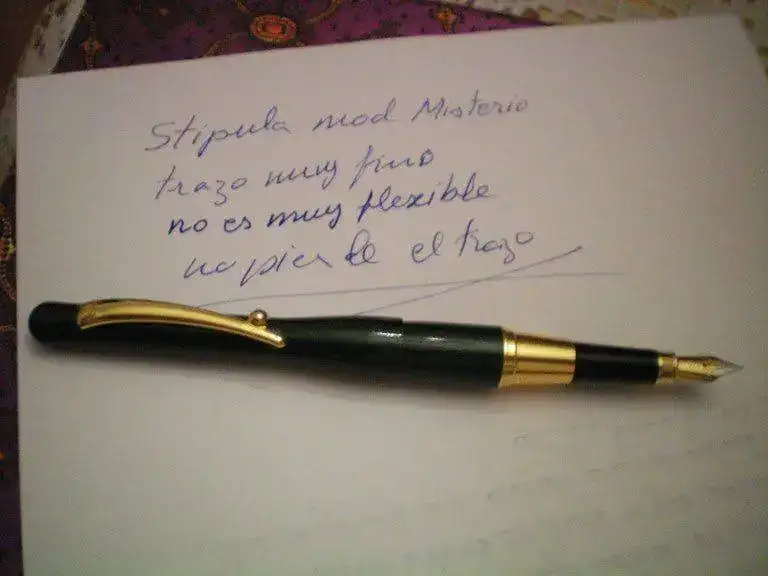 Stipula mod Misterio
trazo muy fino
no es muy flexible
no pierde el trazo